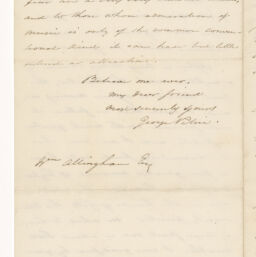 and to those whose admiration of
music is only of the common conven-
tional kind, it can have but little
interest or attraction.
Believe me ever,
my dear friend
most sincerely yours
George
Wm Allingham Esq